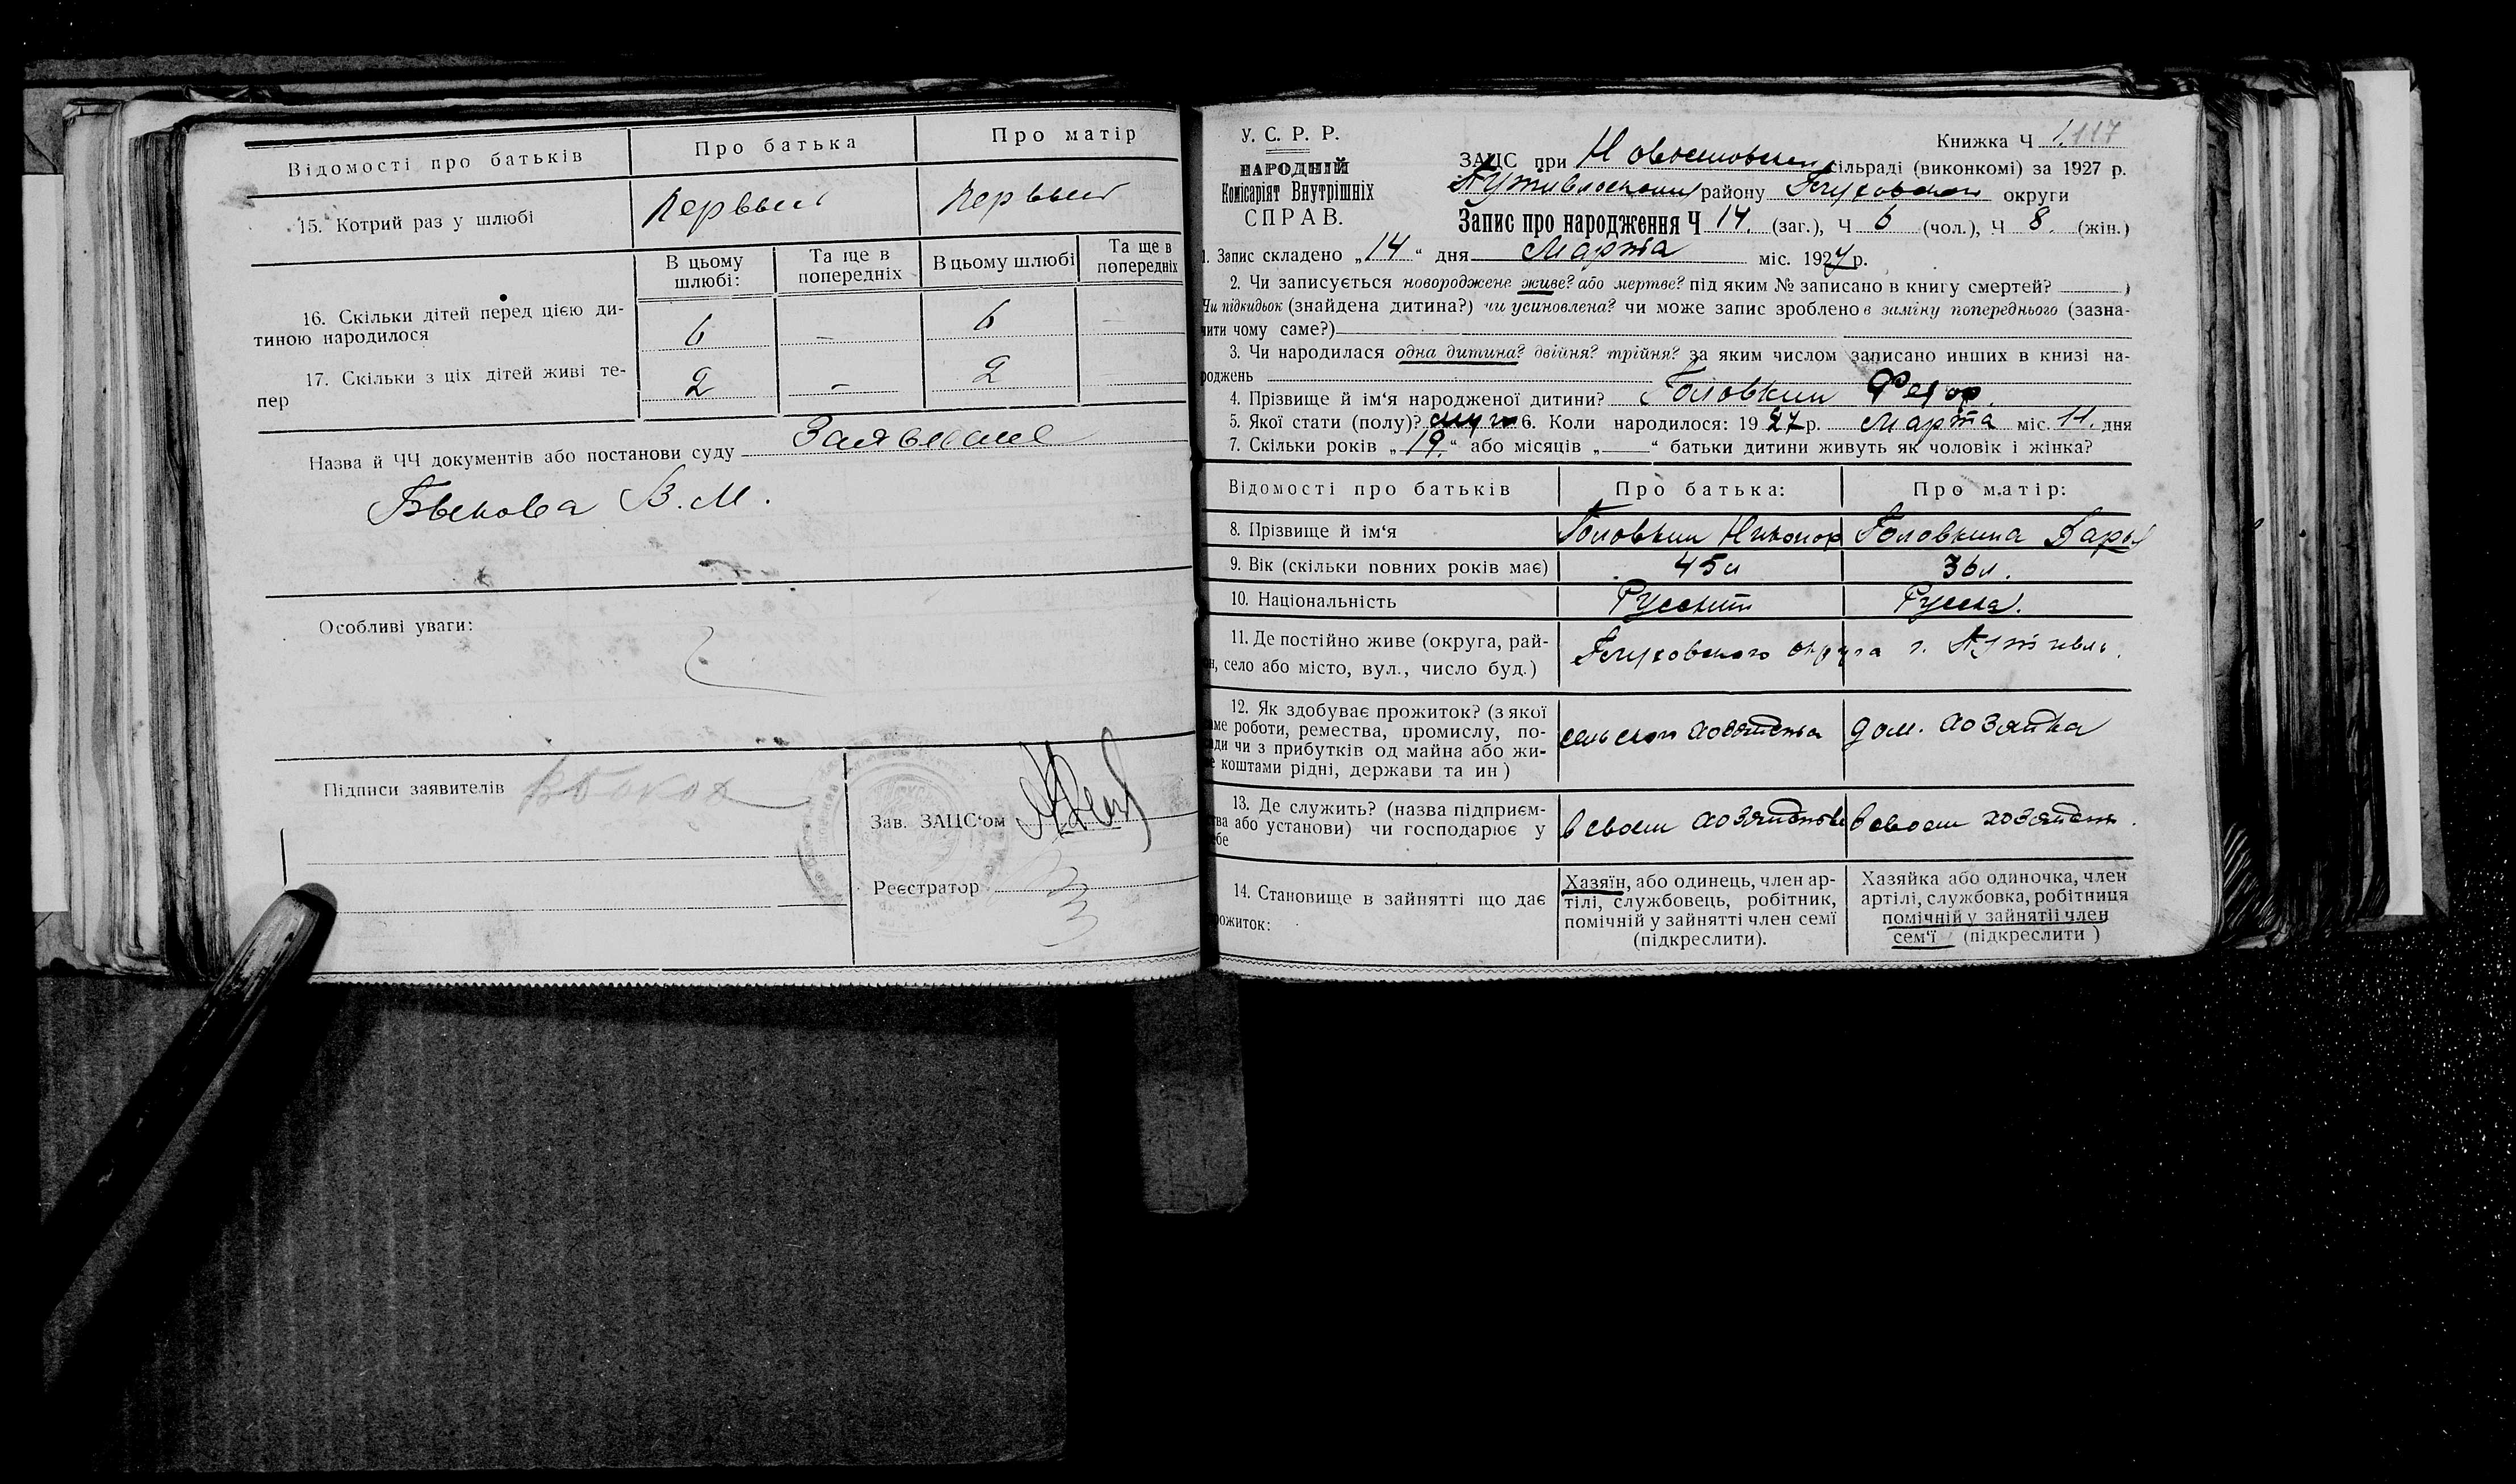 Відомості про батьків
Про батька
Про матір
15. Котрий раз у шлюбі
Первый
Первый
В цьому шлюбі:
Та ще в попередніх
В цьому шлюбі
Та ще в попередніх
16. Скільки дітей перед цією ди-
тиною народилося
6
–
6
–
17. Скільки з ціх дітей живі те-
пер
2
–
2
Назва й ЧЧ документів або постанови суду Заявление
В. М.
Особливі уваги:
Підписи заявителів
Зав. ЗАЦС‘ом
Реєстратор
У. С. Р. Р.
НАРОДНІЙ
Комісаріят Внутрішніх
СПРАВ.
Книжка Ч 1. 117
ЗАЦС при сільраді (виконкомі) за 1927 р.
Путивльского району Глуховской округи
Запис про народження Ч 14. (заг.), Ч 6 (чол.), Ч 8. (жін.)
1. Запис складено „14“ дня Марта міс. 1927 р.
2. Чи записується новороджене живе? або мертве? під яким № записано в книгу смертей? )
Чи підкидьок (знайдена дитина?) чи усиновлена? чи може запис зроблено в заміну попереднього (зазна-
чити чому саме?)
3. Чи народилася одна дитина? двійня? трійня? за яким числом записано инших в книзі на-
роджень
4. Прізвище й ім‘я народженої дитини? Головкин Федор.
5. Якої стати (полу)? муж. 6. Коли народилося: 1927 р. Марта міс. 11. дня
7. Скільки років „19.“ або місяців „ “ батьки дитини живуть як чоловік і жінка?
Відомості про батьків
Про батька:
Про матір:
8. Прізвище й ім‘я
Головкин Никонор
Головкина Дарья
9. Вік (скільки повних років має)
45 л
36 л.
10. Національність
Русский
Русска.
11. Де постійно живе (округа, рай-
он, село або місто, вул., число буд.)
Глуховского округа г. Путивль.
12. Як здобуває прожиток? (з якої
саме роботи, ремества, промислу, по-
сади чи з прибутків од майна або жи-
ве коштами рідні, держави та ин )
сельском хозяйства
дом. хозяйка
13. Де служить? (назва підприєм-
ства або установи) чи господарює у
себе
в своем хозяйстве
в своем хозяйств.
14. Становище в зайнятті що дає
прожиток:
Хазяїн, або одинець, член ар-
тілі, службовець, робітник,
помічній у зайнятті член семї
(підкреслити).
Хазяйка або одиночка, член
артілі, службовка, робітниця
помічній у зайнятіі член
сем‘ї (підкреслити )